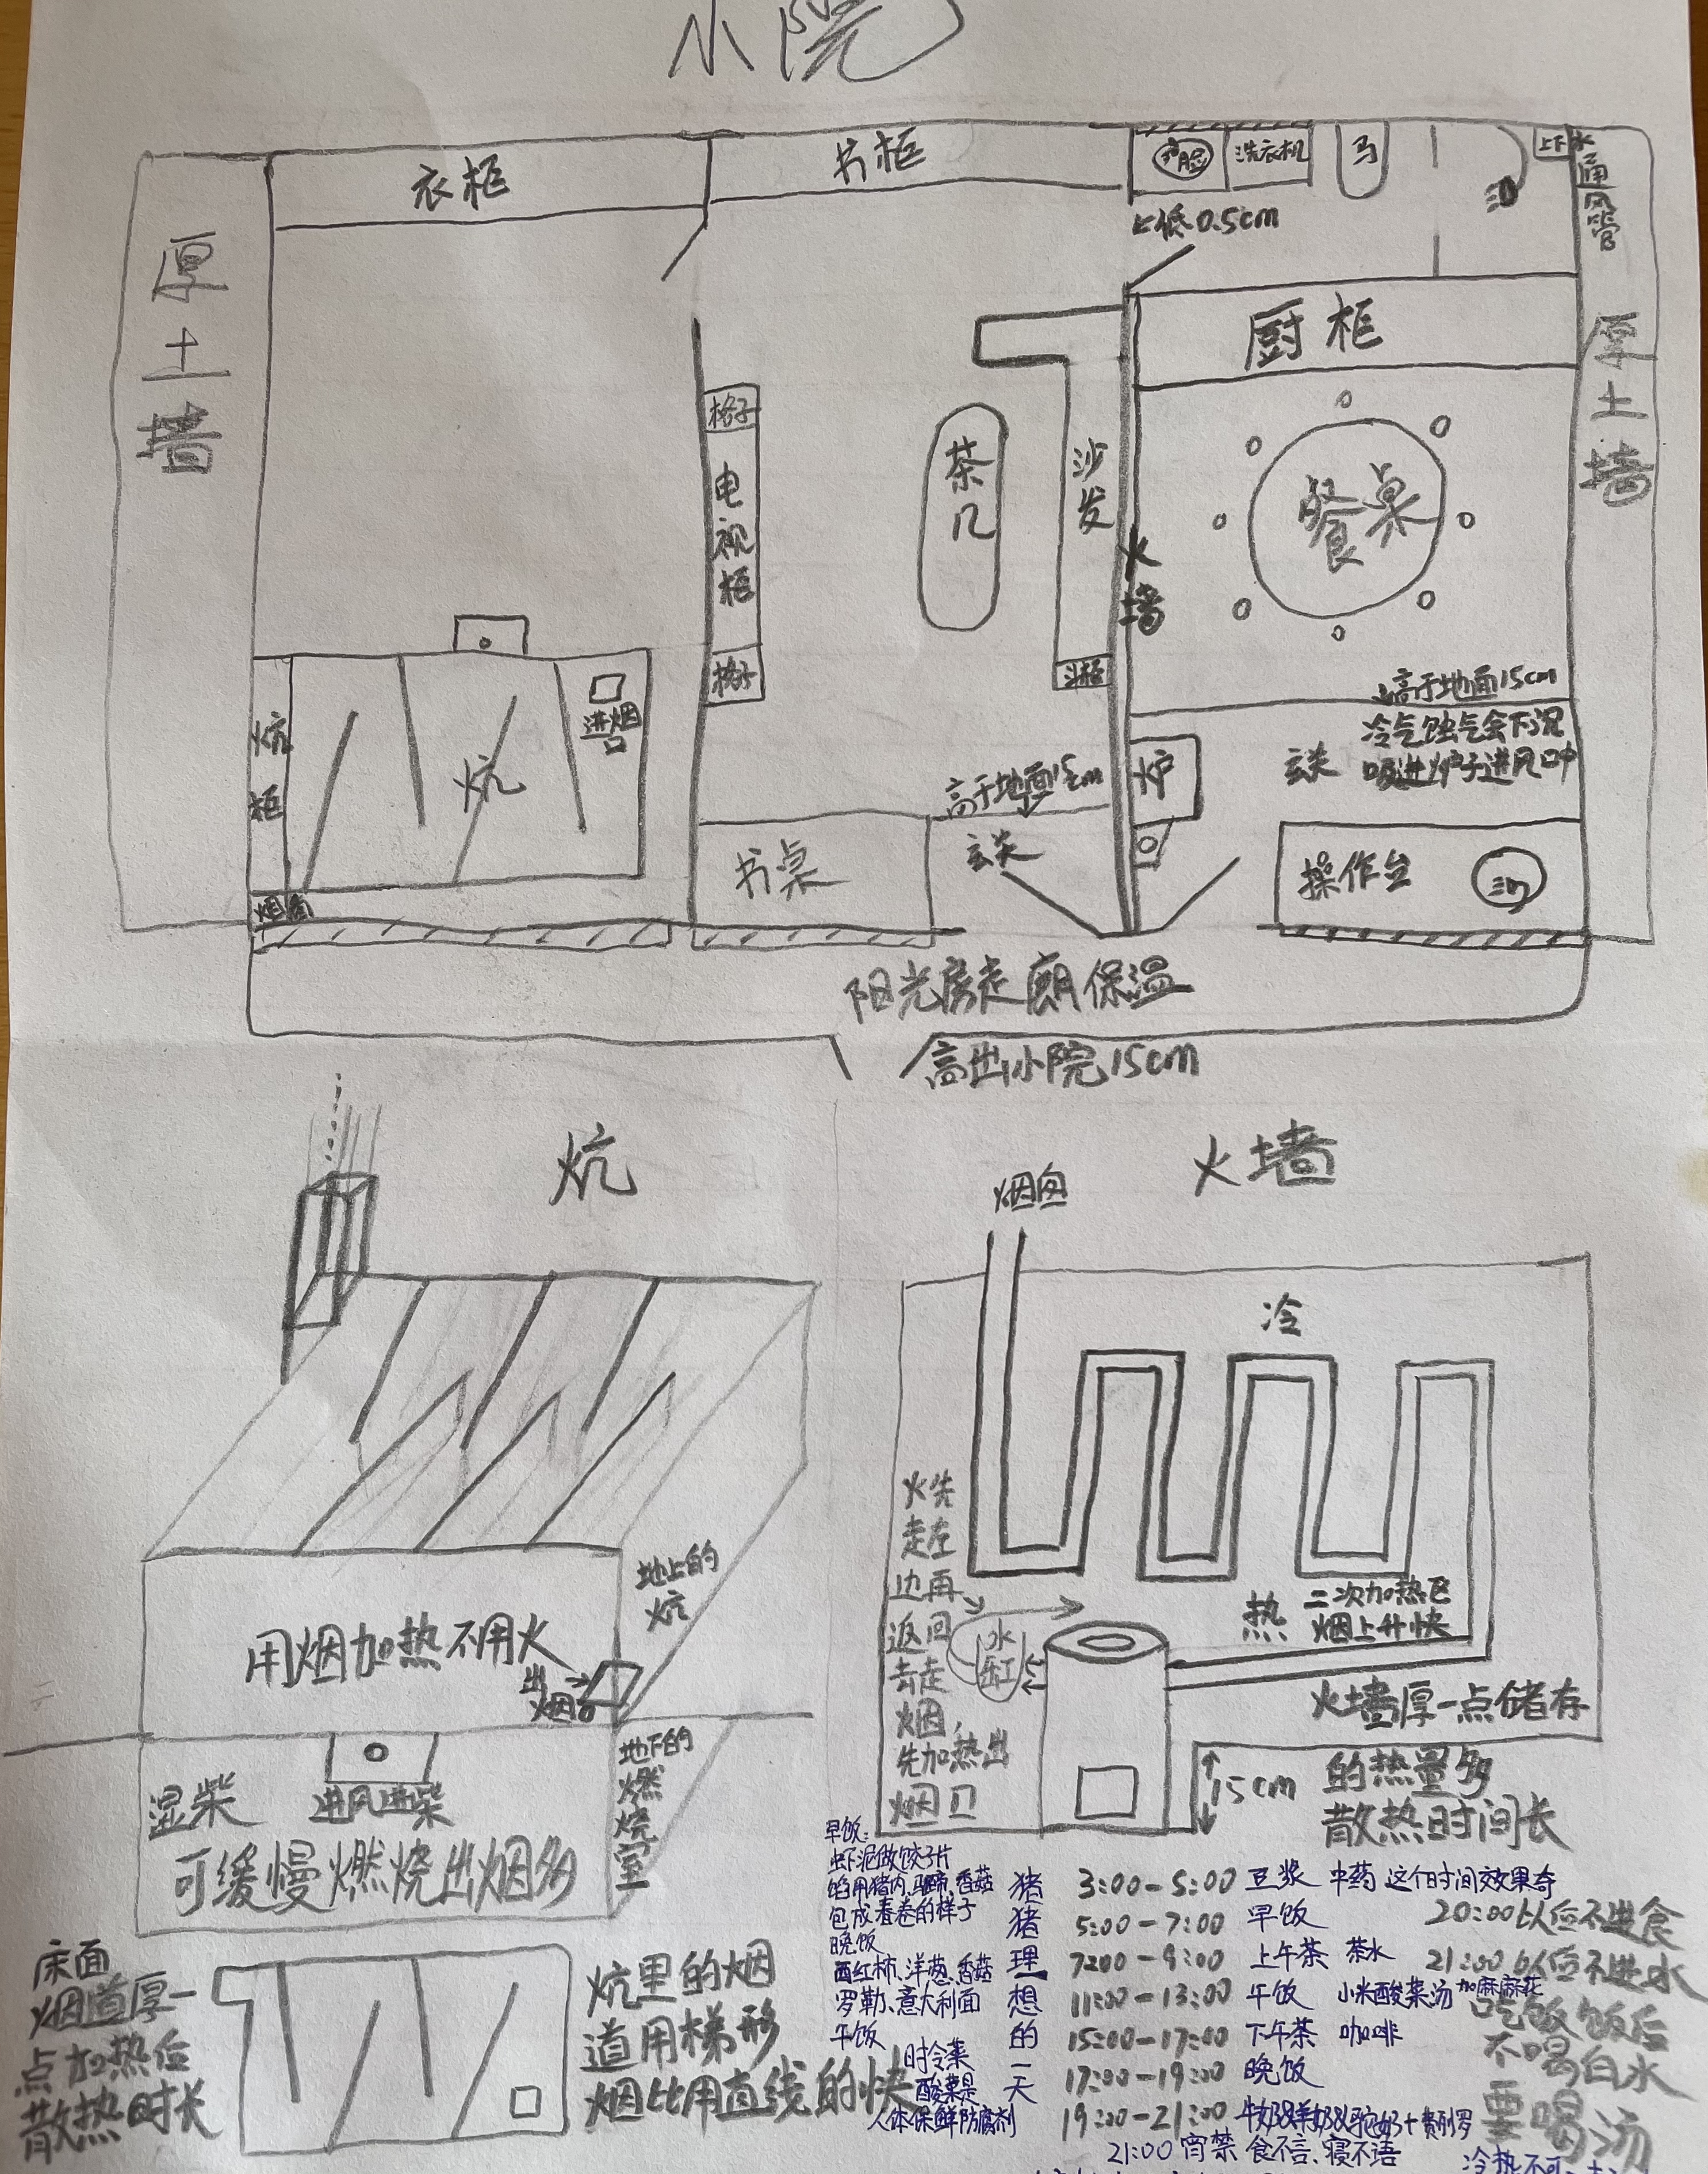 小院
衣柜
书柜
洗脸
洗衣机
马
上下水
通风管
低0.5cm
厚土墙
厨柜
厚土墙
格子
电视柜
格子
茶几
沙发
火墙
餐桌
高于地面15cm
冷气蚀气会下沉
吸进炉子进风口中
玄关
炕柜
炕
进烟口
烟囱
高于地面15cm
玄关
书桌
炉
操作台
阳光房走廊保温
高出小院15cm
炕
地上的炕
用烟加热不用火
出烟口
地下的燃烧室
进风进柴
湿柴
可缓慢燃烧出烟多
床面
烟道厚一
点加热后
散热时长
炕里的烟
道用梯形
烟比用直线的快
火墙
烟囱
冷
火先
走左
边再
返回
去走
烟,
先加热出
烟口
水缸
热
二次加热区
烟上升快
火墙厚一点储存
的热量多
散热时间长
15cm
早饭:
虾泥做饺子片
馅用猪肉、马蹄、香菇
包成春卷的样子
晚饭
西红柿、洋葱、香菇
罗勒、意大利面
午饭
时令菜
酸菜是
人体保鲜防腐剂
猪猪理想的一天
3:00-5:00 豆浆 中药 这个时间效果奇
5:00-7:00 早饭
7:00-9:00 上午茶 茶水
11:00-13:00 午饭 小米酸菜汤 加麻麻花
15:00-17:00 下午茶 咖啡
17:00-19:00 晚饭
19:00-21:00 牛奶&羊奶&驼奶+费列罗
21:00 宵禁 食不言、寝不语
20:00以后不进食
21:00以后不进水
吃饭饭后
不喝白水
要喝汤
冷热不可